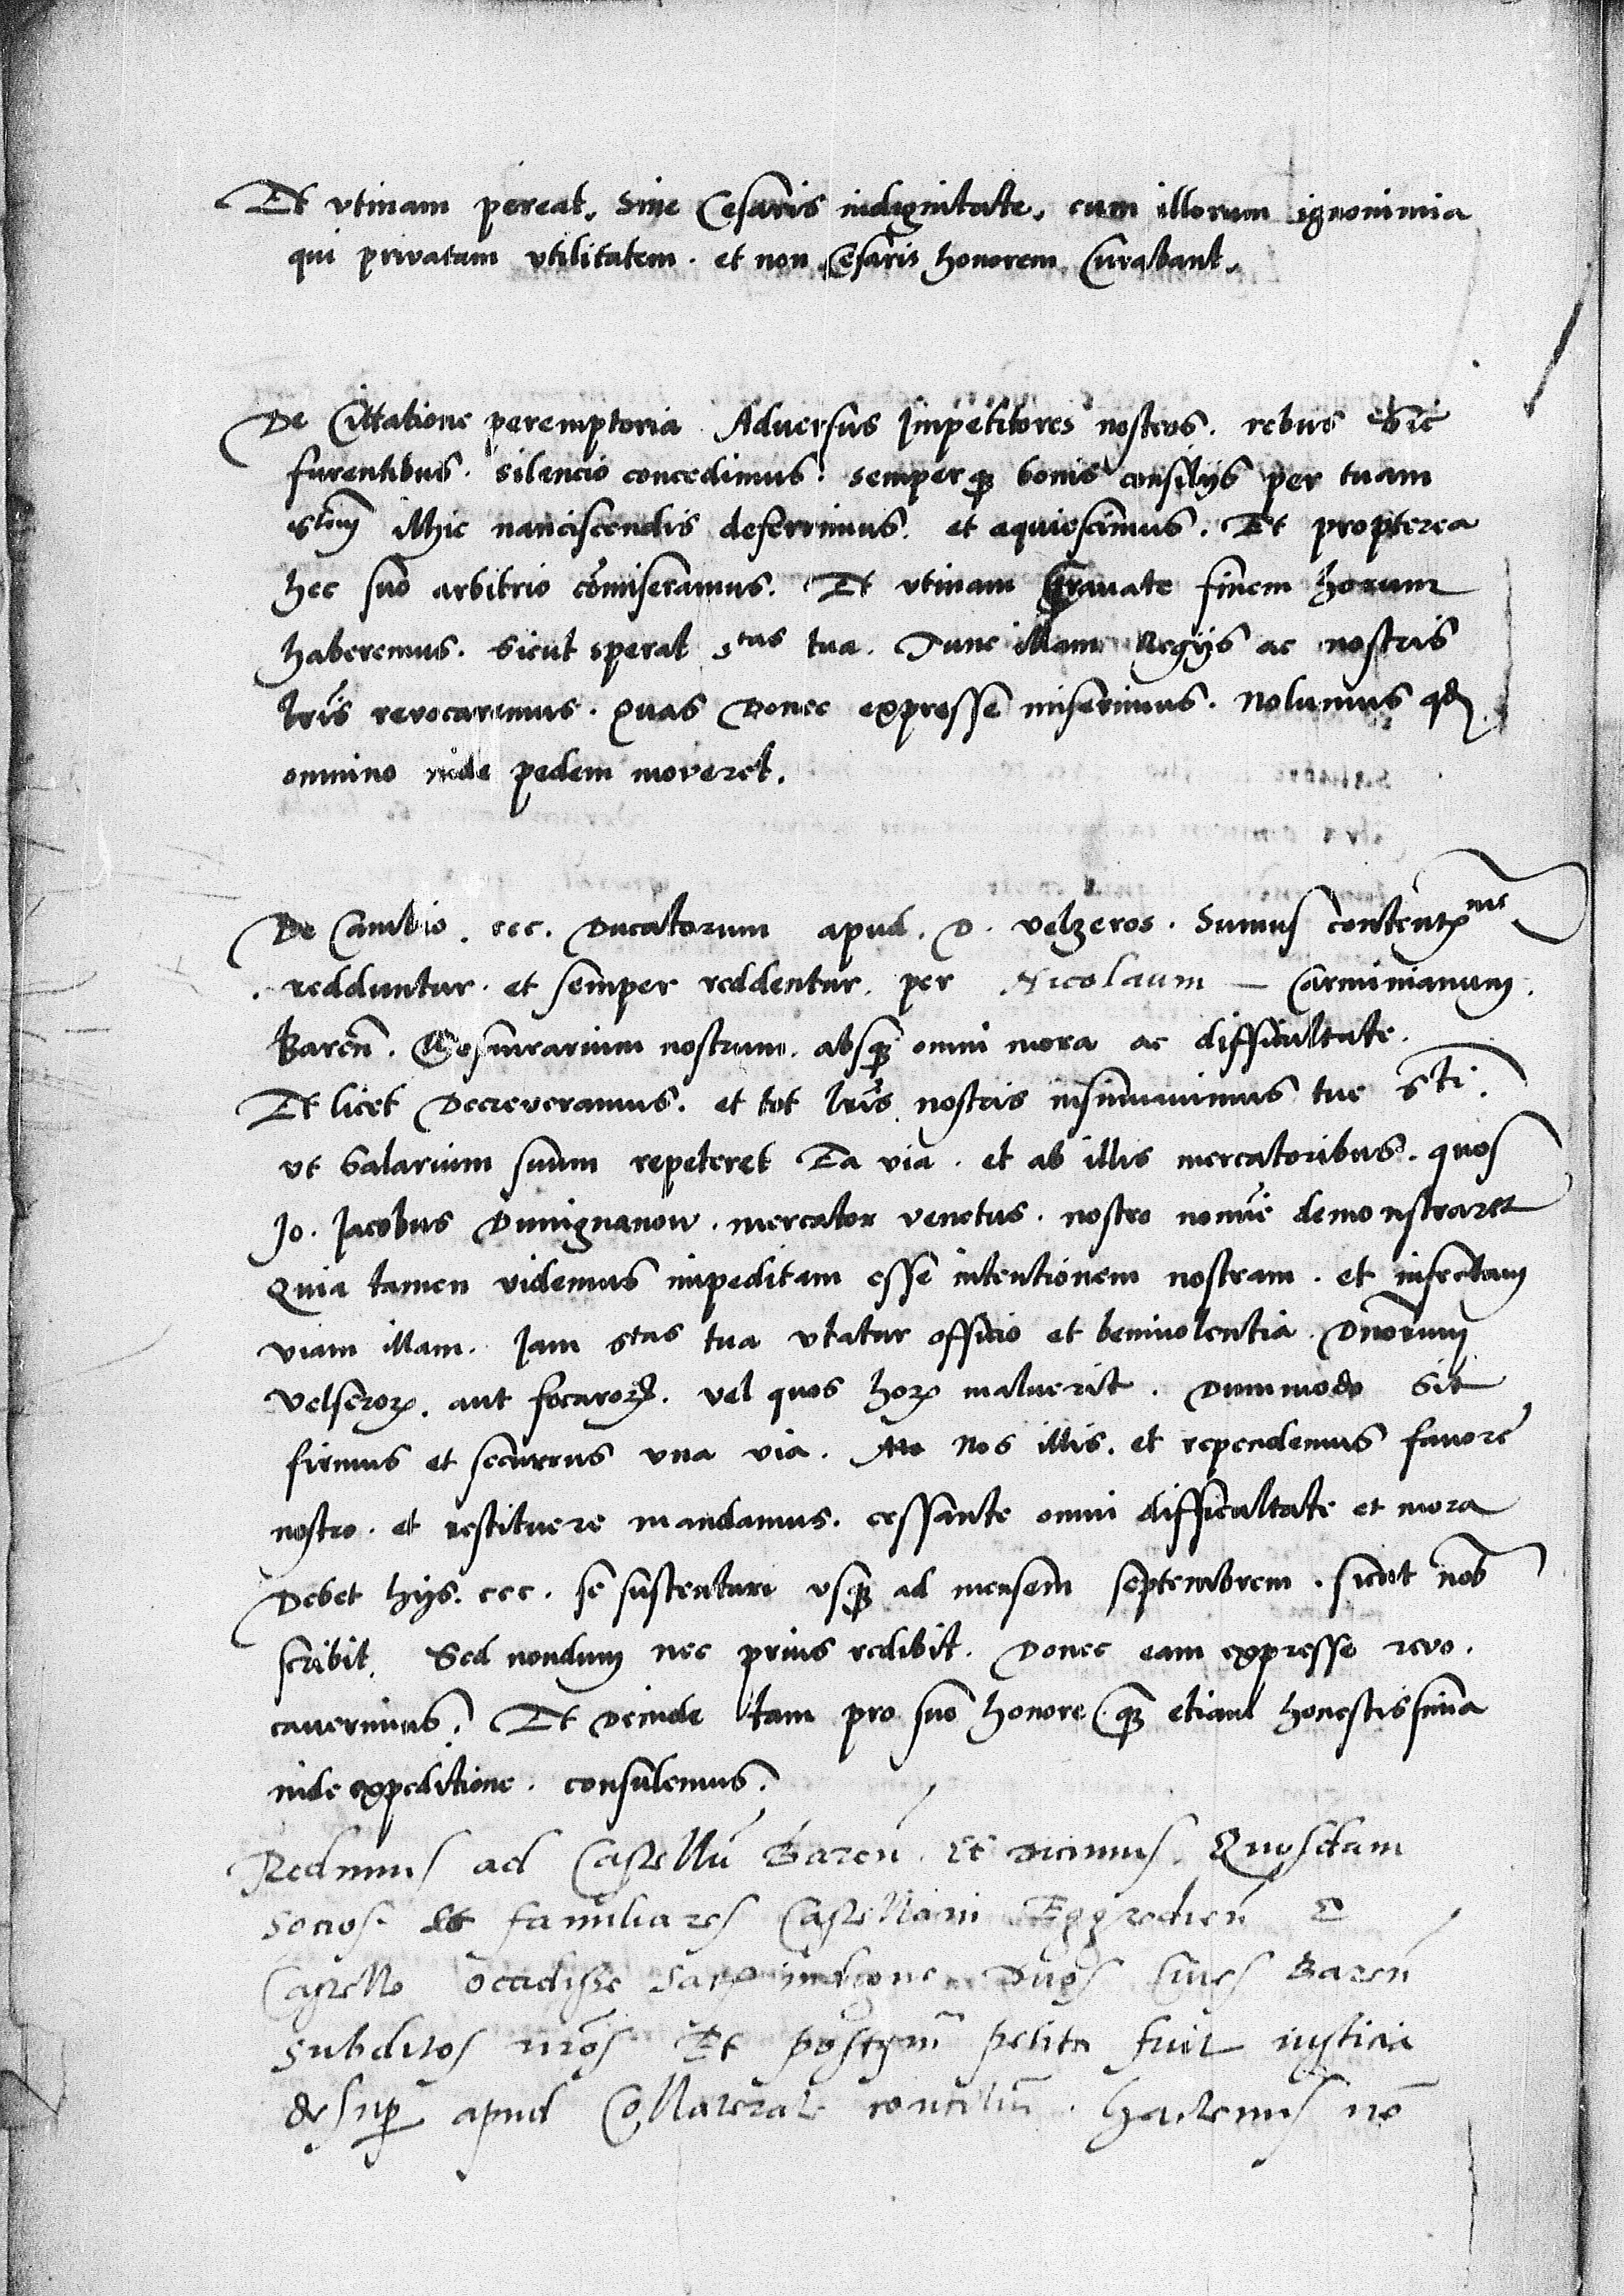 Et vtinam pereat. Sine Cesaris indignitate. cum illorum ignonimia
qui privatam vtilitatem. et non Cesaris honorem Curabant.
De Cittatione peremptoria Adversus Impetitores nostros. rebus Sic
furentibus. silencio concedimus. semperq3 bonis consilijs per tuam
stem illhic nanciscendis deferrimus. et aquiescimus. Et propterea
hec suo arbitrio comiseramus. Et vtinam Gravate finem horum
haberemus. Sicut sperat stas tua. Tunc illam Regijs ac nostris
lris revocaremus. Quas Donec expresse miserimus. Nolumus qd
omnino inde pedem moveret.
De Cambio. ccc. Ducatorum apud. D. velzeros. Sumus contenti
redduntur. et semper reddentur. per Nicolaum — Carminianum.
Baren. nostrum. absq3 omni mora ac difficultate.
Et licet Decreveramus. et tot lris nostris insinuavimus tue sti.
vt Salarium suum repeteret Ea via. et ab illis mercatoribus. quos
Jo. Jacobus Dumignanow. mercator venetus. nostro nomie demonstraret
Quia tamen videmus impeditam esse intentionem nostram. et infectam
viam illam. Jam stas tua vtatur officio et benivolentia. Dnorum
Velseror. aut focaror. vel quos hor maluerit. Dummodo Sit
firmus et securus vna via. Nos illis. et rependemus favore
nostro. et restituere mandamus. cessante omni difficultate et mora
Debet hijs. ccc. se sustentare vsq3 ad mensem septembrem. sicut nob
scribit. Sed nondum nec prius redibit. Donec eam expresse revo.
caverimus. Et Deinde tam pro suo honore q3 etiam honestissima
inde expeditione. consulemus.
Redimus ad Castellu Baren. Et dicimus. Quosdam
socios. et familiares Castellani Eggredien E
Castello occidisse satis indigne Duos Cives Baren
subditos nros Et postqm petita fuit iusticia
desup apud Collaterale conciliu. hactenus no